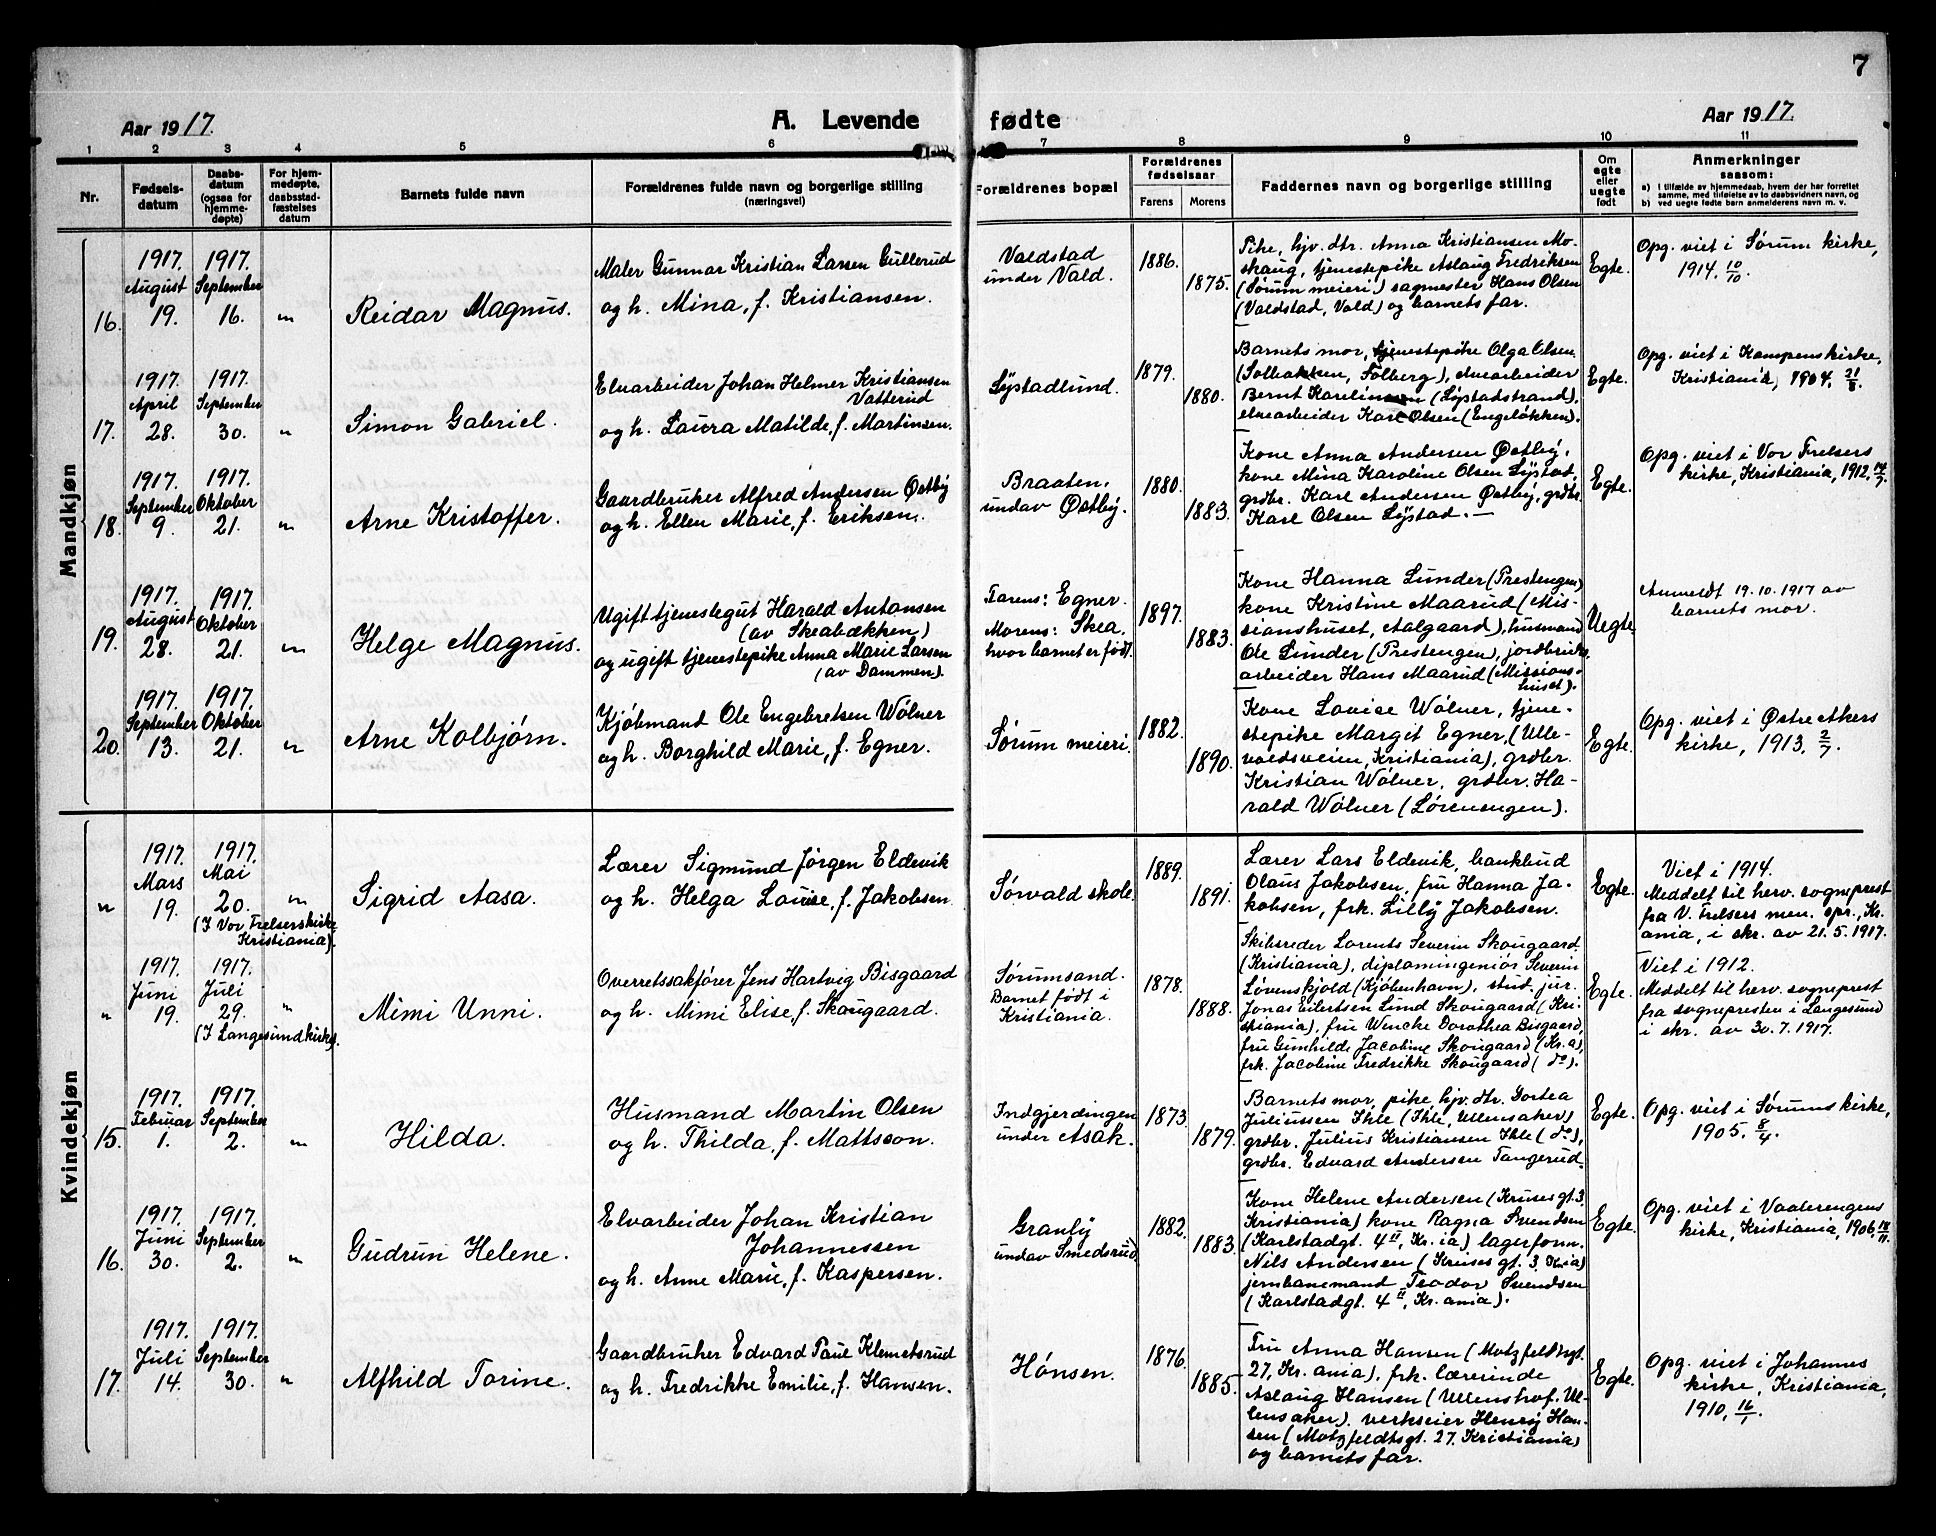 7
Aar 1917.
A. Levende fødte
Aar 1917.
1 2 3 4 5 6 7 8 9 10 11
Nr.
Fødsels-
datum
Daabs-
datum
(ogsaa for
hjemme-
døpte)
For hjem-
medøpte,
daabsstad-
fæstelses
datum
Barnets fulde navn
Forældrenes fulde navn og borgerlige stilling
(næringsvei)
Forældrenes bopæl
Forældrenes
fødselsaar
Farens. Morens.
Faddernes navn og borgerlige stilling
Om
egte
eller
uegte
født
Anmerkninger
saasom:
a) I tilfælde av hjemmedaab, hvem der har forrettet
samme, med tilføielse av to daabsvidners navn, og
b) ved uegte fødte barn anmelderens navn m. v.
Mandkjøn
16.
1917.
August
19.
1917.
September
16.
"
Reidar Magnus.
Maler Gunnar Kristian Larsen Gullerud
og h. Mina, f. Kristiansen.
Valdstad
under Vald.
1886.
1875.
Pike, hjv. dtr. Anna Kristiansen Mo-
skaug, tjenestepike Aslaug Fredriksen
(Sørum meieri) sagmester Hans Olsen
(Valdstad, Vald) og barnets far.
Egte.
Opg. viet i Sørum kirke,
1914. 10/10.
17.
1917.
April
28.
1917.
September
30.
"
Simon Gabriel.
Elvarbeider Johan Helmer Kristiansen
Vatterud
og h. Laura Matilde, f. Martinsen.
Lystadlund.
1879.
1880.
Barnets mor, tjenestepike Olga Olsen
(Solbakken, Folberg), elvearbeider
Bernt Karelinsen (Lystadstrand),
elvearbeider Karl Olsen (Engeløkken).
Egte.
Opg. viet i Kampens kirke,
Kristiania, 1904, 21/8.
18.
1917.
September
9.
1917.
Oktober
21.
"
Arne Kristoffer.
Gaardbruker Alfred Andersen Østby
og h. Ellen Marie, f. Eriksen.
Braaten,
undav Østby.
1880.
1883.
Kone Anna Andersen Østby,
kone Mina Karoline Olsen Lystad,
grdbr. Karl Andersen Østby, grdbr.
Karl Olsen Lystad. —
Egte.
Opg. viet i Vor Frelsers
kirke, Kristiania, 1912, 14/7.
19.
1917.
August
28.
1917.
Oktober
21.
"
Helge Magnus.
Ugift tjenestegut Harald Antonsen
(av Skeabækken)
og ugift tjenestepike Anna Marie Larsen
(av Dammen).
Farens: Egner.
Morens: Skea,
hvor barnet er født.
1897.
1883.
Kone Hanna Lunder (Prestengen)
kone Kristine Maarud (Mis-
sianshuset, Aalgaard), husmand
Ole Lunder (Prestengen), jordbruks-
arbeider Hans Maarud (Missions-
huset).
Uegte.
Anmeldt 19.10.1917 av
barnets mor.
20.
1917.
September
13.
1917.
Oktober
21.
"
Arne Kolbjørn.
Kjøbmand Ole Engebretsen Wølner
og h. Borghild Marie, f. Egner.
Sørum meieri.
1882.
1890.
Kone Lovise Wølner, tjene-
stepike Margit Egner, (Ulle-
valdsveien, Kristiania), grdbr.
Kristian Wølner, grdbr. Ha-
rald Wølner (Lørenengen).
Egte.
Opg. viet i Østre Akers
kirke, 1913, 2/7.
Kvindekjøn
"
1917.
Mars
19.
1917.
Mai
20.
(I Vor Frelsers kirke
Kristiania).
"
Sigrid Aasa.
Lærer Sigmund Jørgen Eldevik
og h. Helga Louise, f. Jakobsen.
Sørvald skole.
1889.
1891.
Lærer Lars Eldevik, bankbud
Olaus Jakobsen, fru Hanna Ja-
kobsen, frk. Lilly Jakobsen.
Egte.
Viet i 1914.
Meddelt til herv. sogneprest
fra V. Frelsers men. spr., Kr.
ania, i skr. av 21. 5. 1917.
"
1917.
Juni
19.
1917.
Juli
29.
(I Langesund kirke).
"
Mimi Unni.
Overretssakfører Jens Hartvig Bisgaard
og h. Mimi Elise, f. Skougaard.
Sørumsand.
Barnet født i
Kristiania.
1878.
1888.
Skibsreder Lorents Severin Skougaard
(Kristiania), diplomingeniør Severin
Løvenskjold (Kjøbenhavn), stud. jur.
Jonas Eilertsen Lund Skougaard (Kri-
stiania), fru Wencke Dorothea Bisgaard,
fru Gunhilde Jacobine Skougaard (Kr. a),
frk. Jacobine Fredrikke Skougaard (do).
Egte.
Viet i 1912.
Meddelt til herv. sogneprest
fra sognepresten i Langesund
i skr. av 30. 7. 1917.
15.
1917.
Februar
1.
1917.
September
2.
"
Hilda.
Husmand Martin Olsen
og h. Thilda, f. Mattsson.
Indgjerdingen
under Asak.
1873.
1879.
Barnets mor, pike hjv. dtr. Gortea
Juliussen Ihle (Ihle, Ullensaker)
grdbr. Julius Kristiansen Ihle (do),
grdbr. Edvard Andersen Tangerud.
Egte.
Opg. viet i Sørums kirke,
1905. 8/4.
16.
1917.
Juni
30.
1917.
September
2.
"
Gudrun Helene.
Elvarbeider Johan Kristian
Johannessen
og h. Anne Marie, f. Kaspersen.
Granly
undav Smedsrud.
1882.
1883.
Kone Helene Andersen (Kruses gt. 3,
Kristiania) kone Ragna Svendsen
(Karlstadgt. 4 II, Kr. ia) lagerform.
Nils Andersen (Kruses gt. 3, Kr.ia)
jernbanemand Teodor Svendsen
(Karlstadgt. 4 II, Kr. ania).
Egte.
Opg. viet i Vaalerengens
kirke, Kristiania, 1906, 18/11.
17.
1917.
Juli
14.
1917.
September
30.
"
Alfhild Torine.
Gaardbruker Edvard Paul Klemetsrud
og h. Fredrikke Emilie, f. Hansen.
Hønsen.
1876.
1885.
Fru Anna Hansen (Motzfeldtsgt.
27, Kr. ania), frk. lærerinde
Aslaug Hansen (Ullenshof, Ul-
lensaker), verkseier Henry Han-
sen (Motzfeldtsgt. 27, Kristiania)
og barnets far.
Egte.
Opg. viet i Johannes
kirke, Kristiania,
1910, 16/1.